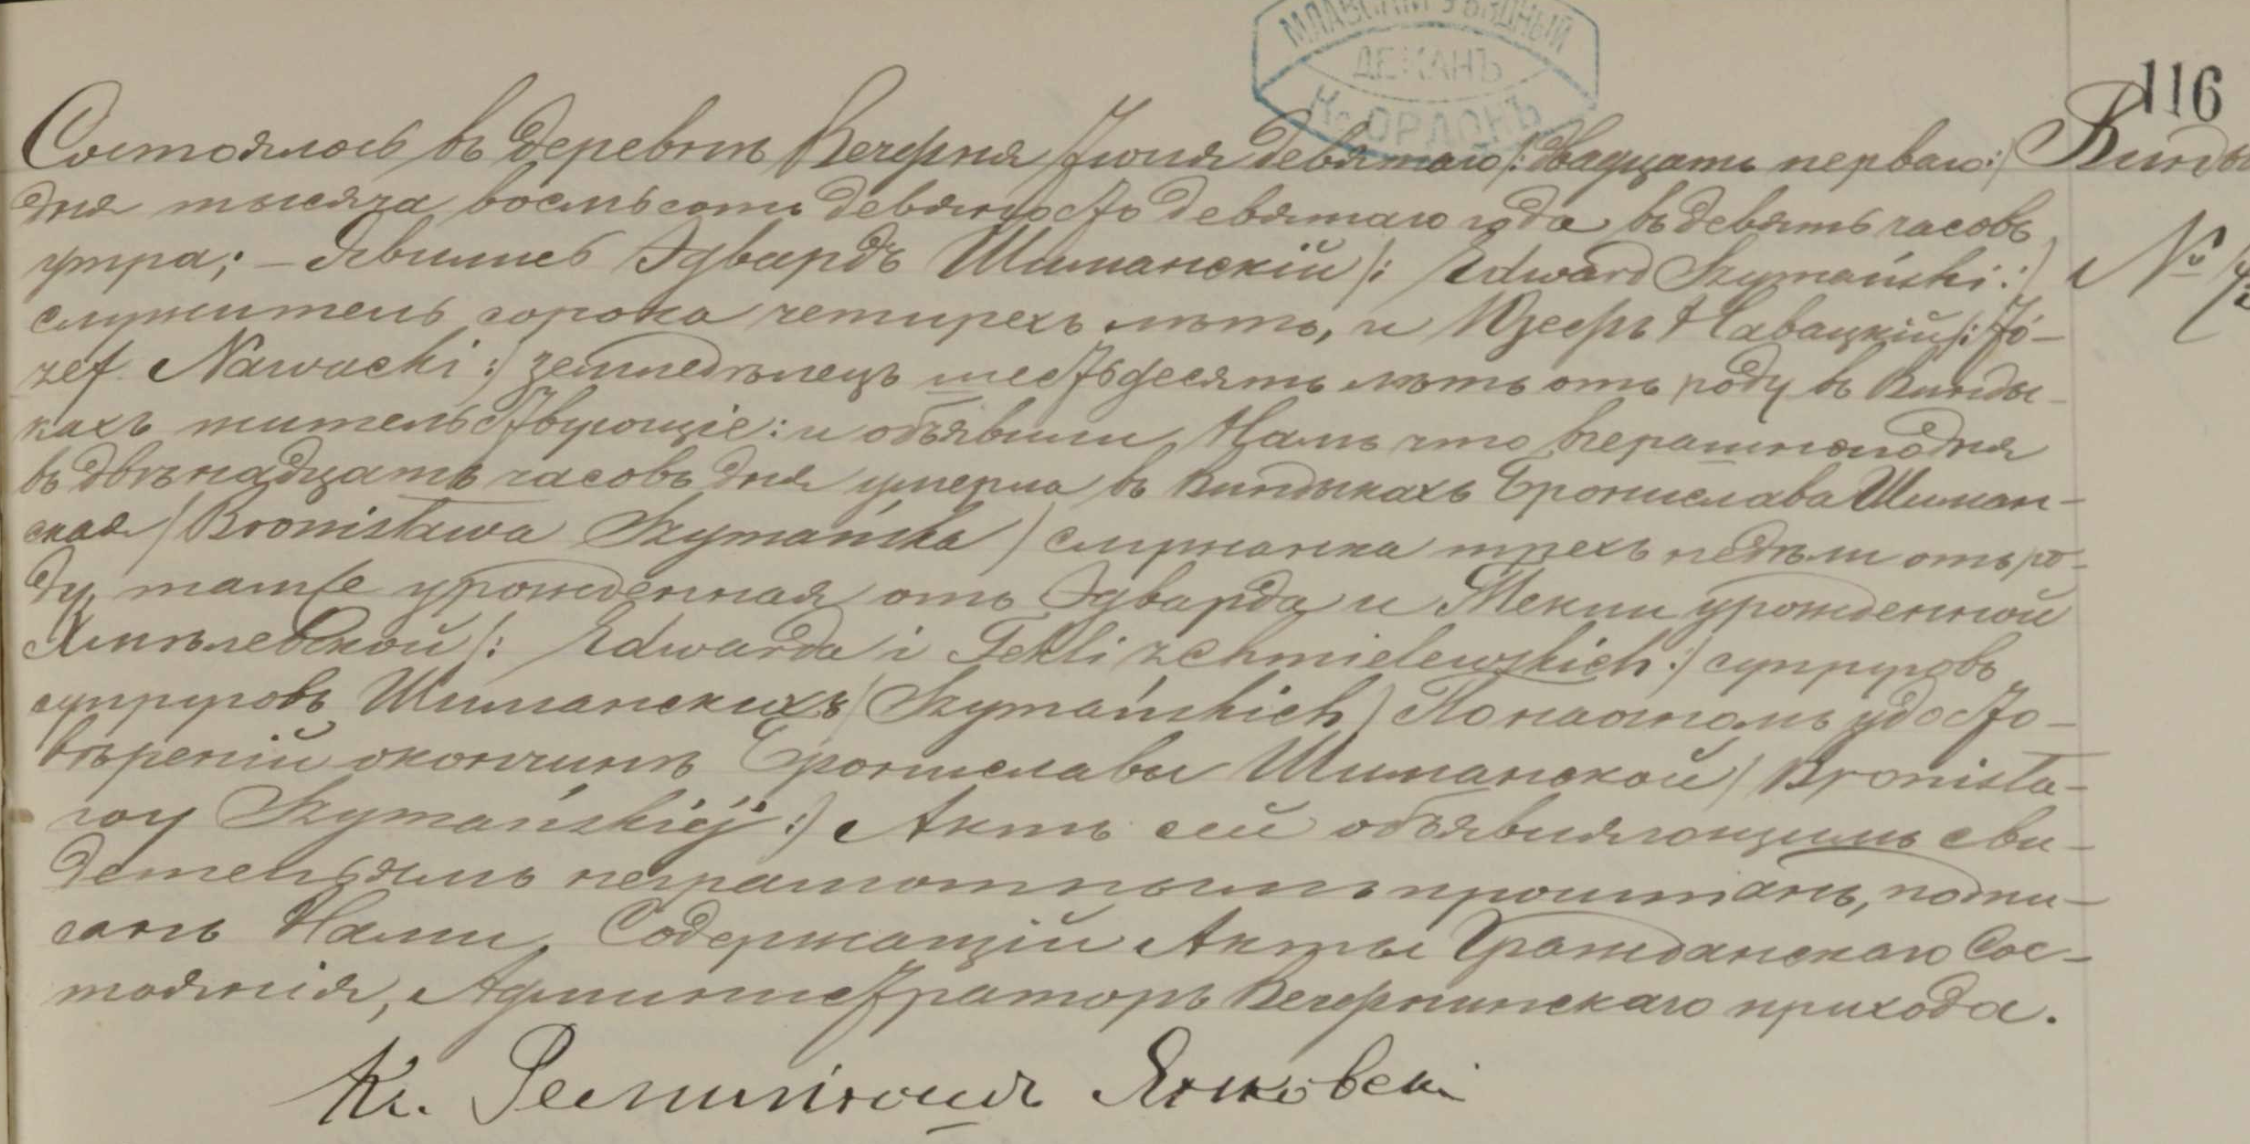 МЛАВСКІЙ УѢЗДНЫЙ
ДЕКАНЪ
Кс. ОРДОНЪ
116
Состоялось въ деревнѣ Вечфня Іюня девятаго /: двадцать перваго :/
дня тысяча восемьсотъ девяносто девятаго года въ девять часовъ
утра; – Явились Эдвардъ Шиманскій /: Edward Szymański :/
служитель сорока четырехъ лѣтъ, и Юзефъ Навацкій /: Jó-
zef Nawacki :/ земледѣлецъ шестьдесятъ лѣтъ отъ роду въ Винды-
кахъ жительствующіе: и объявили Намъ что вчерашняго дня
въ двѣнадцать часовъ дня умерла въ Виндыкахъ Брониславa Шиман-
ская / Bronisława Szymańska / служанка трехъ недѣли отъ ро-
ду, тамже урожденная отъ Эдварда и Текли урожденной
Хмѣлевской /: Edwarda i Tekli z Chmielewskich :/ супруговъ
супруговъ Шиманскихъ / Szymańskich / По настномъ удосто-
вѣреніи окончинѣ Брониславы Шиманской / Bronisła-
wy Szymańskiéj :/ Актъ сей объявляющимъ сви-
детельямъ неграмотнымъ прочитанъ, подпи-
санъ Нами, Содержащій Акты Гражданскаго Сос-
тоянія, Администраторъ Вечфнинскаго прихода.
Кс. Янковскі
Винды
№